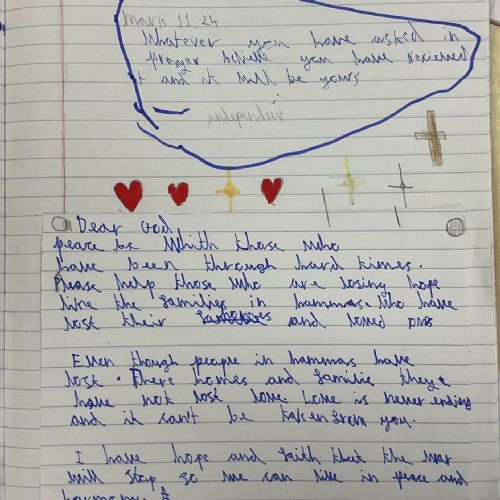 Mark 11:24
Whatever you have asked in
prayer belive you have recieved
it and it will be yours
independent
Dear God
peace be Whith those who
have been through hard times.
Please help those who are losing hope
like the families in hammas. Who have
lost their homes and loved ons
Even though people in hammas have
lost. There homes and familie they
have not lost love. Love is never ending
and it can't be taken from you.
I have hope and faith that the war
will stop so we can live in peace and
harmony.